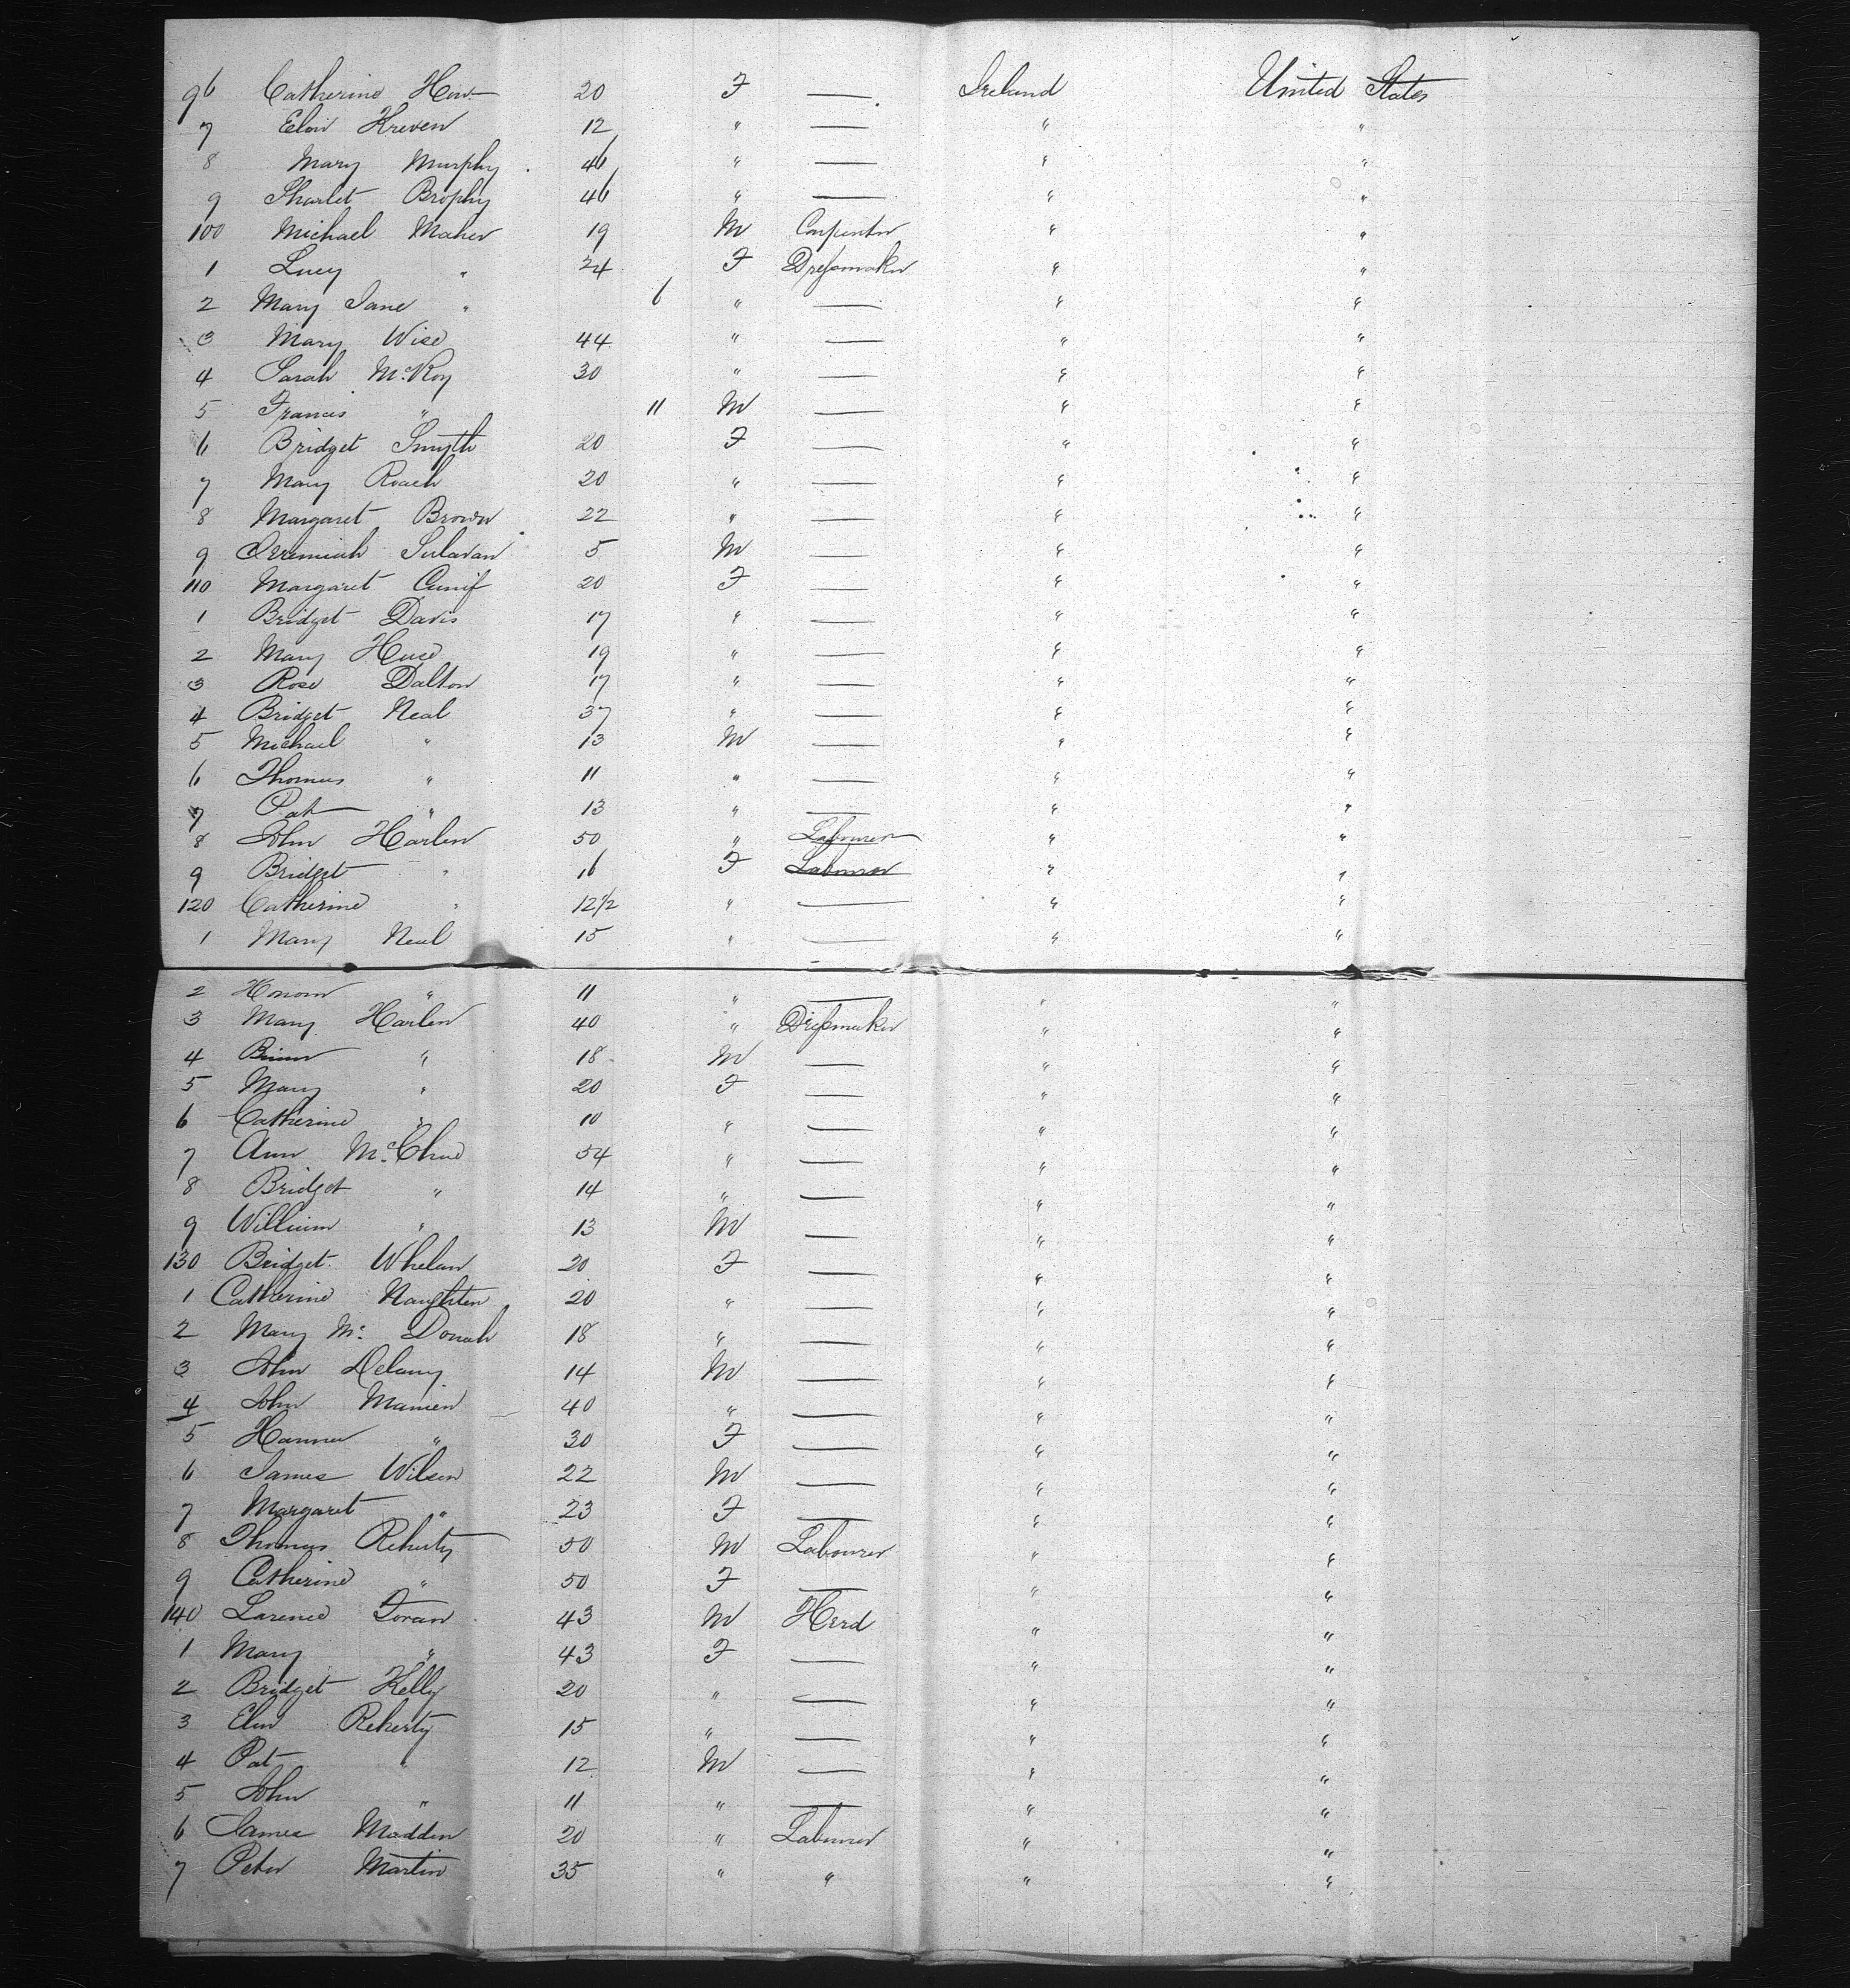 96 Catherine How 20 F — Ireland United States
7 Elen Kreven 12 " — " "
8 Mary Murphy 46 " — " "
9 Sharlet Brophy 46 " — " "
100 Michael Maher 19 M Carpenter " "
1 Lucy " 24 F Dressmaker " "
2 Mary Jane " 6 " — " "
3 Mary Wise 44 " — " "
4 Sarah McKoy 30 " — " "
5 Francis " 11 M — " "
6 Bridget Smyth 20 F — " "
7 Mary Roach 20 " — " "
8 Margaret Brown 22 " — " "
9 Jeremiah Sulavan 5 M — " "
110 Margaret Cunif 20 F — " "
1 Bridget Davis 17 " — " "
2 Mary Huse 19 " — " "
3 Rose Dalton 17 " — " "
4 Bridget Neal 37 " — " "
5 Michael " 13 M — " "
6 Thomas " 11 " — " "
7 Pat " 13 " — " "
8 John Harlen 50 " Labourer " "
9 Bridget " 16 F Labourer " "
120 Catherine " 12½ " — " "
1 Mary Neal 15 " — " "
2 Honour " 11 " — " "
3 Mary Harlen 40 " Dressmaker " "
4 " 18 M — " "
5 Mary " 20 F — " "
6 Catherine " 10 " — " "
7 Ann McClue 54 " — " "
8 Bridget " 14 " — " "
9 William " 13 M — " "
130 Bridget Whelan 20 F — " "
1 Catherine Naughten 20 " — " "
2 Mary Mc Donah 18 " — " "
3 John Delany 14 M — " "
4 John Mamien 40 " — " "
5 Hanner " 30 F — " "
6 James Wilson 22 M — " "
7 Margaret " 23 F — " "
8 Thomas Reherty 50 M Labourer " "
9 Catherine " 50 F — " "
140 Larence Doran 43 M Herd " "
1 Mary " 43 F — " "
2 Bridget Kelly 20 " — " "
3 Elen Reherty 15 " — " "
4 Pat " 12 M — " "
5 John " 11 " — " "
6 James Madden 20 " Labourer " "
7 Peter Martin 35 " " " "